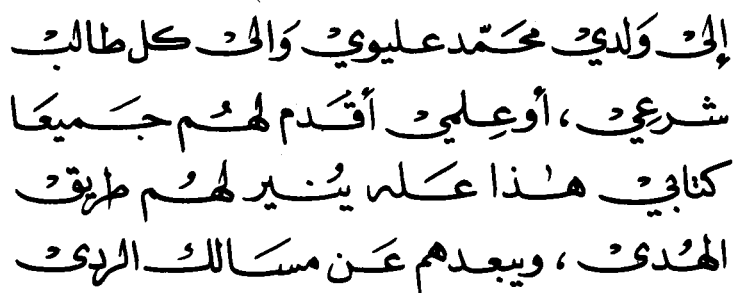 إلىْ وَلديْ محَمّد عليويْ وَالىْ كل طالبْ
شرعِيْ ، أو عِلميْ أقَدم لهُم جَميعَا
كتابيْ هٰذا عَله يُنير لهُم طريقْ
الهُدىْ ، ويبعدهم عَن مسَالك الردىْ